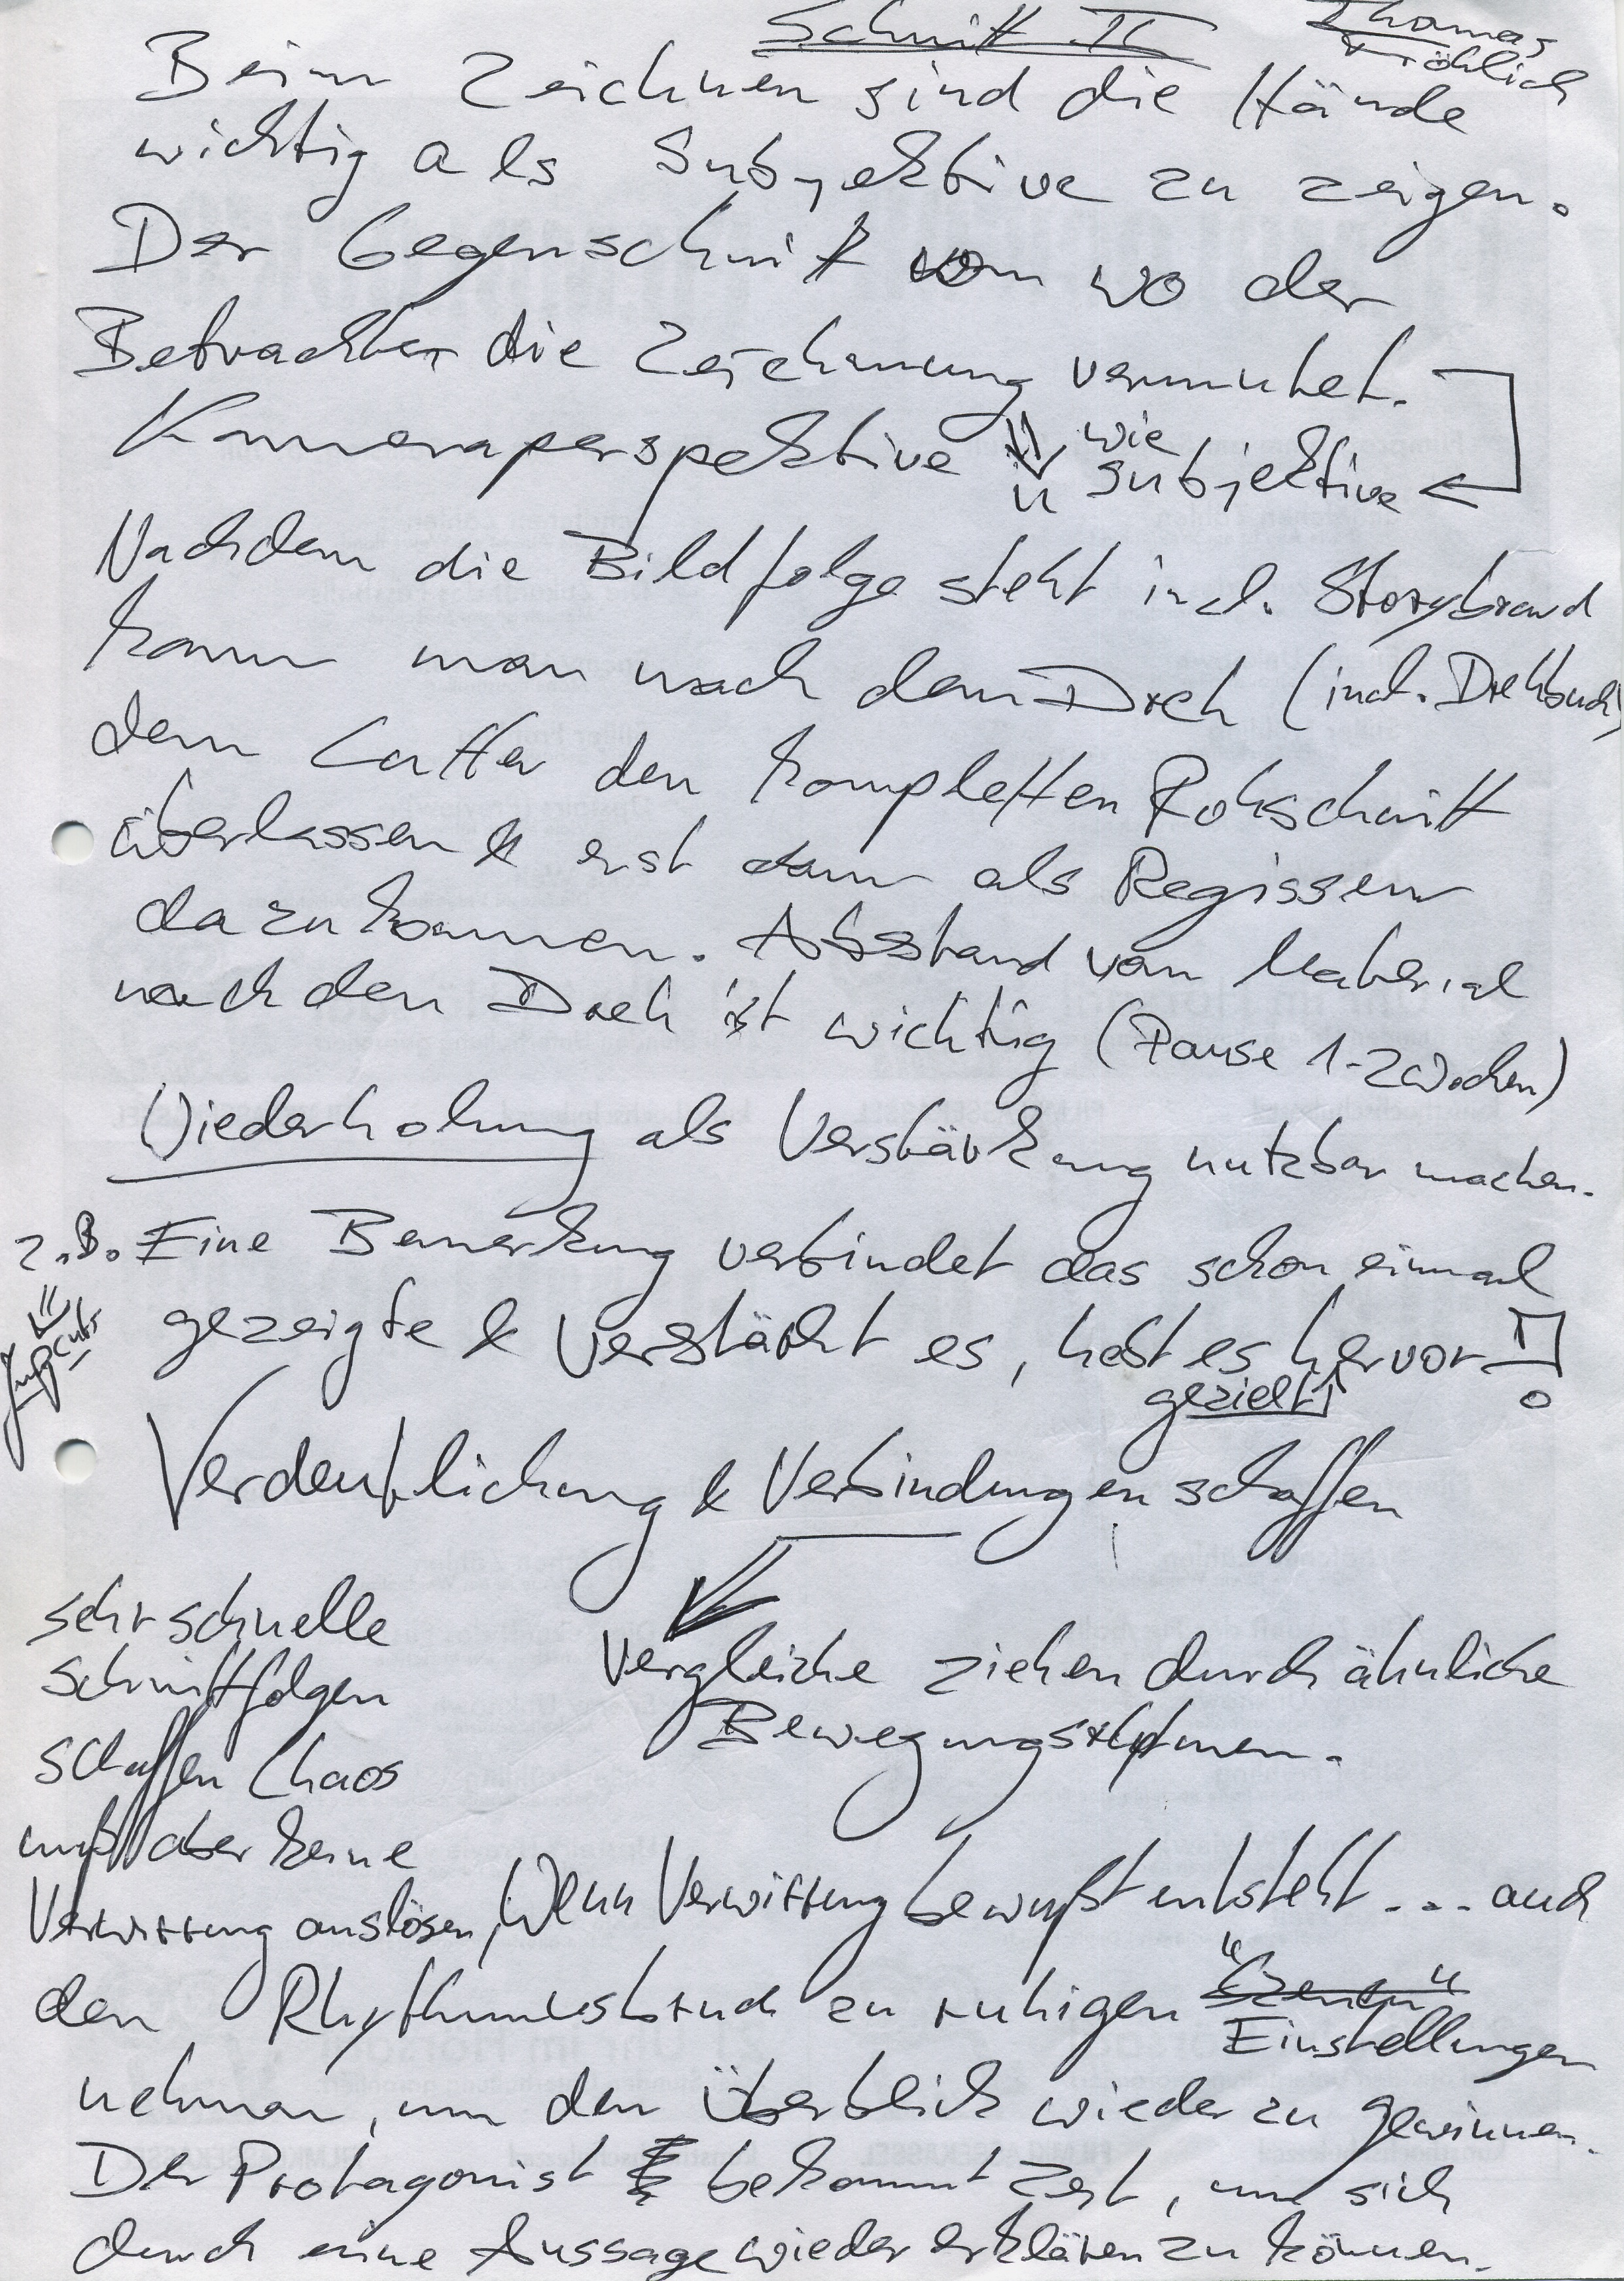 Schnitt II
Thomas
Fröhlich
Beim Zeichnen sind die Hände
wichtig als Subjektive zu zeigen.
Der Gegenschnitt von wo der
Betrachter die Zeichnung vermutet.
Kameraperspektive ü wie
Subjektive
Nachdem die Bildfolge steht incl. Storybrand
kann man nach dem Dreh (incl. Drehbuch)
dem Cutter den kompletten Rohschnitt
überlassen & erst dann als Regisseur
dazukommen. Abstand vom Material
nach den Dreh ist wichtig (Pause 1-2 Wochen)
Wiederholung als Verstärkung nutzbar machen.
z.B. Eine Bemerkung verbindet das schon einmal
Jumpcuts
gezeigte & Verstärkt es, hebt es hervor!
gezielt
Verdeutlichung & Verbindungen schaffen
Vergleiche ziehen durch ähnliche
Bewegungsrhytmen.
sehr schnelle
Schnittfolgen
schaffen Chaos
muß aber keine
Verwirrung auslösen, Wenn Verwirrung bewußt entsteht .... auch
den Rhythmusbruch zu ruhigen "Szenen"
Einstellungen
nehmen, um den Überblick wieder zu gewinnen.
Der Protagonist bekommt Zeit, um sich
durch eine Aussage wieder erklären zu können.